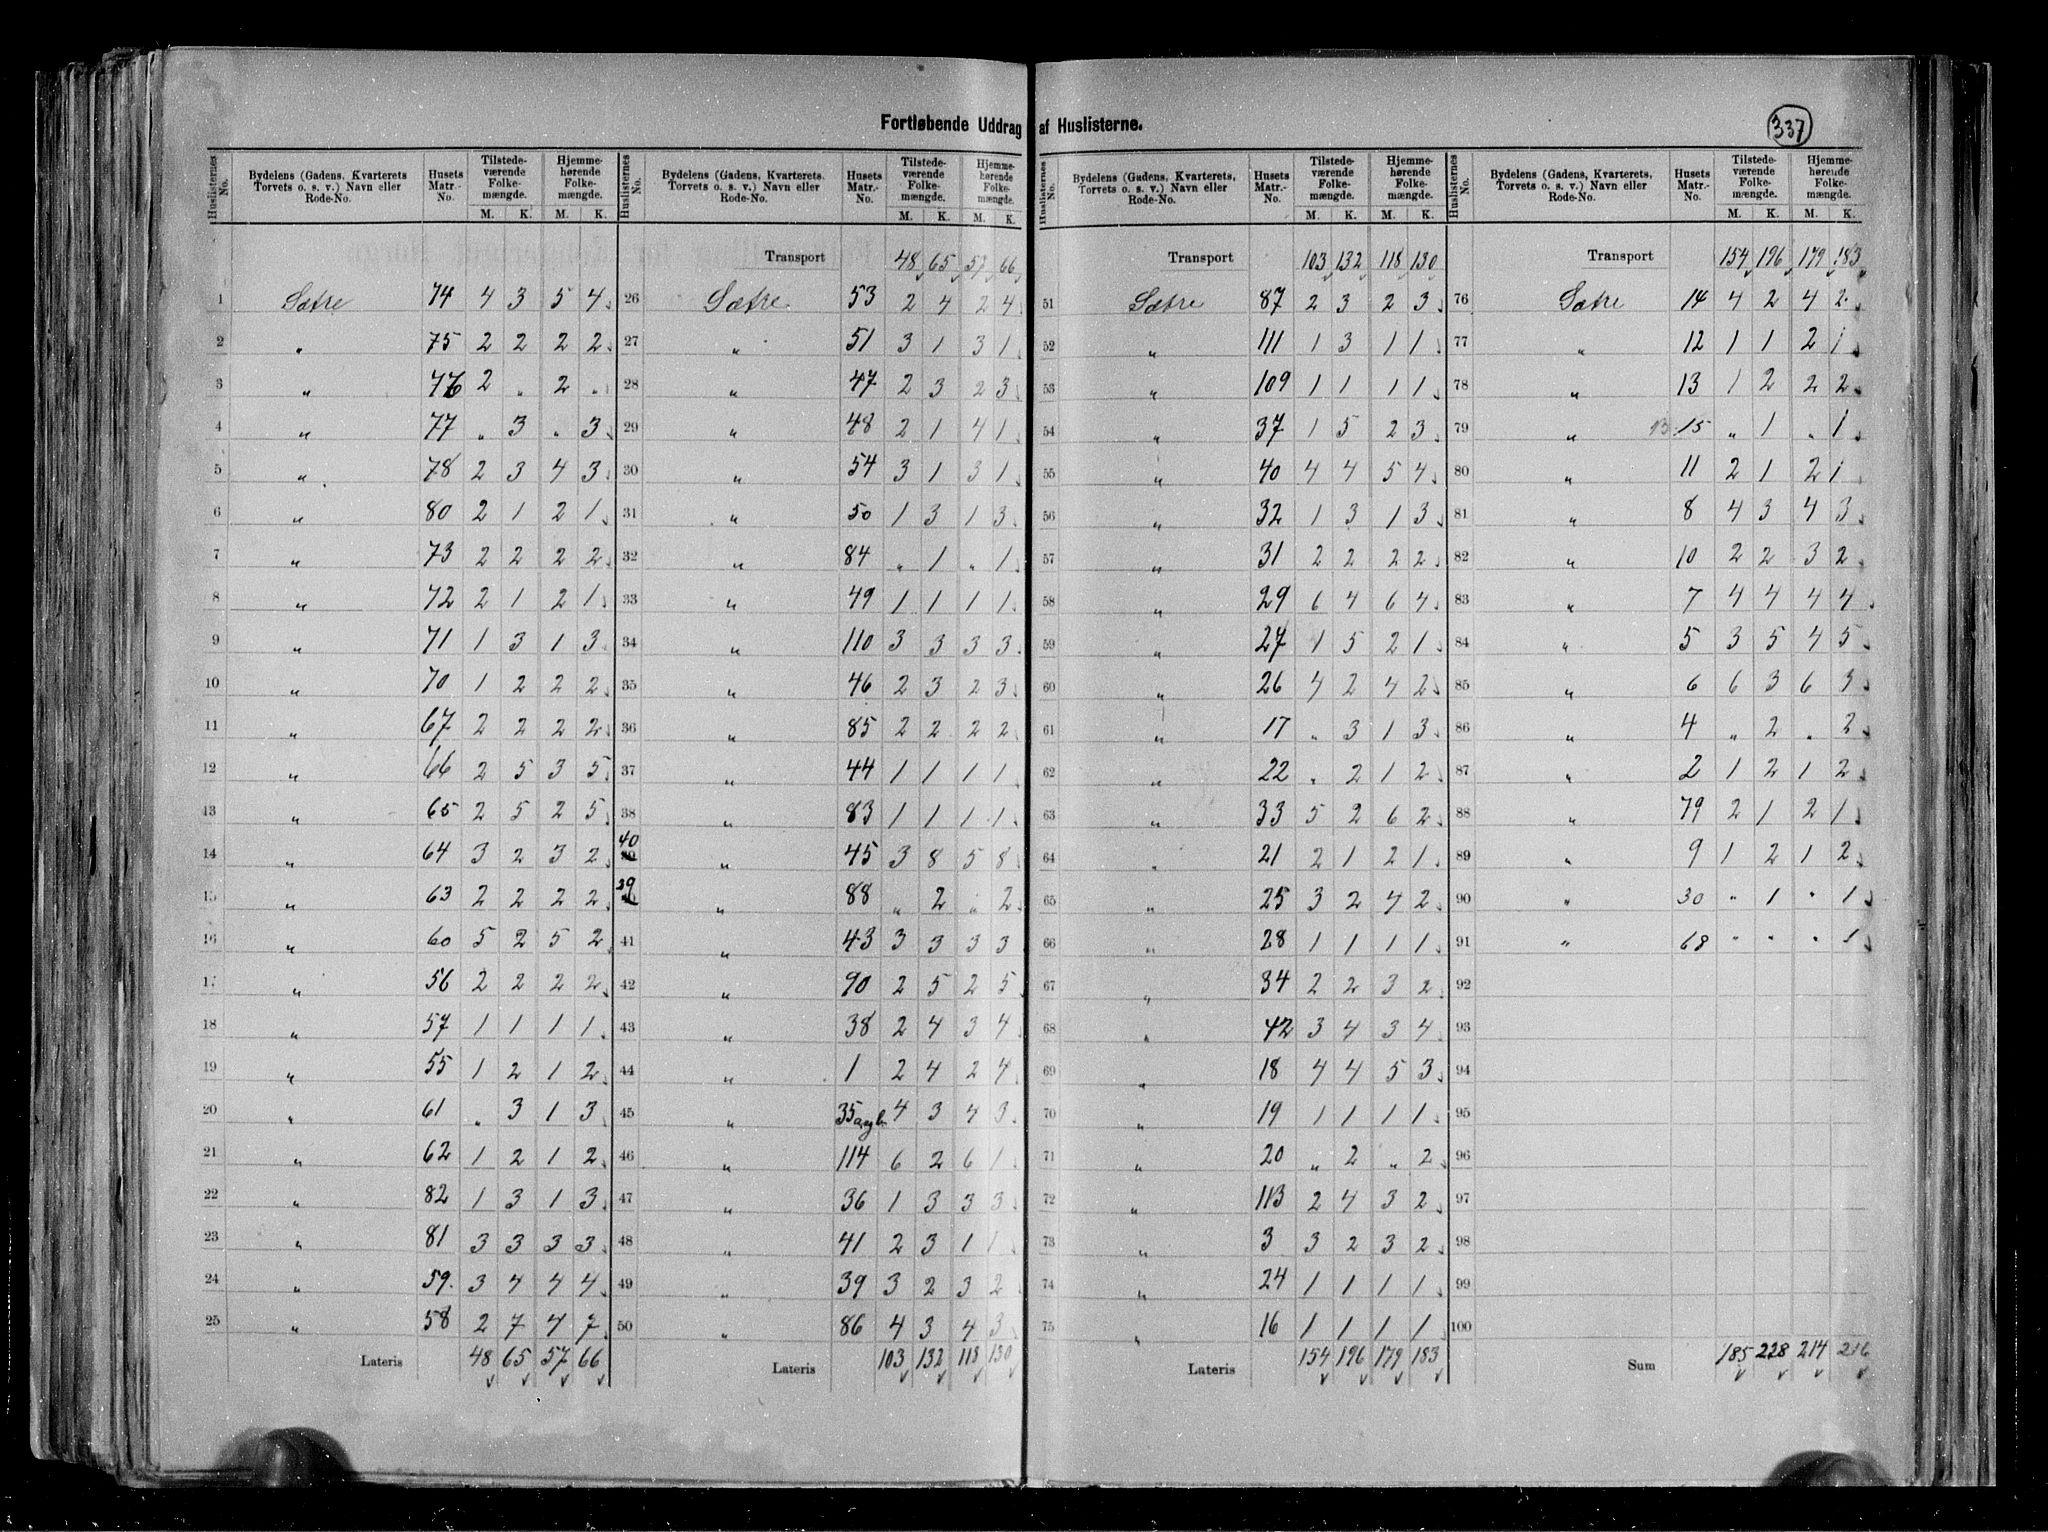 Fortløbende Uddrag af Huslisterne.
337
Huslisternes No. Bydelens (Gadens, Kvarterets Torvets o. s. v.) Navn eller Rode-No. Husets Matr.-No. Tilstedeværende Folkemængde. M. K. Hjemmehørende Folkemængde. M. K.
1 Sætre 74 4 3 5 4
2 " 75 2 2 2 2
3 " 76 2 " 2 "
4 " 77 " 3 " 3
5 " 78 2 3 4 3
6 " 80 2 1 2 1
7 " 73 2 2 2 2
8 " 72 2 1 2 1
9 " 71 1 3 1 3
10 " 70 1 2 2 2
11 " 67 2 2 2 2
12 " 66 2 5 3 5
13 " 65 2 5 2 5
14 " 64 3 2 3 2
15 " 63 2 2 2 2
16 " 60 5 2 5 2
17 " 56 2 2 2 2
18 " 57 1 1 1 1
19 " 55 1 2 1 2
20 " 61 " 3 1 3
21 " 62 1 2 1 2
22 " 82 1 3 1 3
23 " 81 3 3 3 3
24 " 59. 3 4 4 4
25 " 58 2 7 4 7
Lateris 48 65 57 66
Huslisternes No. Bydelens (Gadens, Kvarterets. Torvets o. s. v.) Navn eller Rode-No. Husets Matr.-No. Tilstedeværende Folkemængde. M. K. Hjemmehørende Folkemængde. M. K.
Transport 48 65 57 66
26 Sætre 53 2 4 2 4
27 " 51 3 1 3 1
28 " 47 2 3 2 3
29 " 48 2 1 4 1
30 " 54 3 1 3 1
31 " 50 1 3 1 3
32 " 84 " 1 " 1
33 " 49 1 1 1 1
34 " 110 3 3 3 3
35 " 46 2 3 2 3
36 " 85 2 2 2 2
37 " 44 1 1 1 1
38 " 83 1 1 1 1
40 " 45 3 8 5 8
39 " 88 " 2 " 2
41 " 43 3 3 3 3
42 " 90 2 5 2 5
43 " 38 2 4 3 4
44 " 1 2 4 2 4
45 " 35 a og b 4 3 4 3
46 " 114 6 2 6 1
47 " 36 1 3 3 3
48 " 41 2 3 1 1
49 " 39 3 2 3 2
50 " 86 4 3 4 3
Lateris 103 132 118 130
Huslisternes No. Bydelens (Gadens, Kvarterets, Torvets o. s. v.) Navn eller Rode-No. Husets Matr.-No. Tilstedeværende Folkemængde. M. K. Hjemmehørende Folkemængde. M. K.
Transport 103 132 118 130
51 Sætre 87 2 3 2 3
52 " 111 1 3 1 1
53 " 109 1 1 1 1
54 " 37 1 5 2 3
55 " 40 4 4 5 4
56 " 32 1 3 1 3
57 " 31 2 2 2 2
58 " 29 6 4 6 4
59 " 27 1 5 2 1
60 " 26 4 2 4 2
61 " 17 " 3 1 3
62 " 22 " 2 1 2
63 " 33 5 2 6 2
64 " 21 2 1 2 1
65 " 25 3 2 4 2
66 " 28 1 1 1 1
67 " 34 2 2 3 2
68 " 42 3 4 3 4
69 " 18 4 4 5 3
70 " 19 1 1 1 1
71 " 20 " 2 " 2
72 " 113 2 4 3 2
73 " 3 3 2 3 2
74 " 24 1 1 1 1
75 " 16 1 1 1 1
Lateris 154 196 179 183
Huslisternes No. Bydelens (Gadens, Kvarterets, Torvets o. s. v.) Navn eller Rode-No. Husets Matr.-No. Tilstedeværende Folkemængde. M. K. Hjemmehørende Folkemængde. M. K.
Transport 154 196 179 183
76 Sætre 14 4 2 4 2
77 " 12 1 1 2 1
78 " 13 1 2 2 2
79 " 13 15 " 1 " 1
80 " 11 2 1 2 1
81 " 8 4 3 4 3
82 " 10 2 2 3 2
83 " 7 4 4 4 4
84 " 5 3 5 4 5
85 " 6 6 3 6 3
86 " 4 " 2 " 2
87 " 2 1 2 1 2
88 " 79 2 1 2 1
89 " 9 1 2 1 2
90 " 30 " 1 " 1
91 " 68 " " " 1
92
93
94
95
96
97
98
99
100
Sum 185 228 214 216